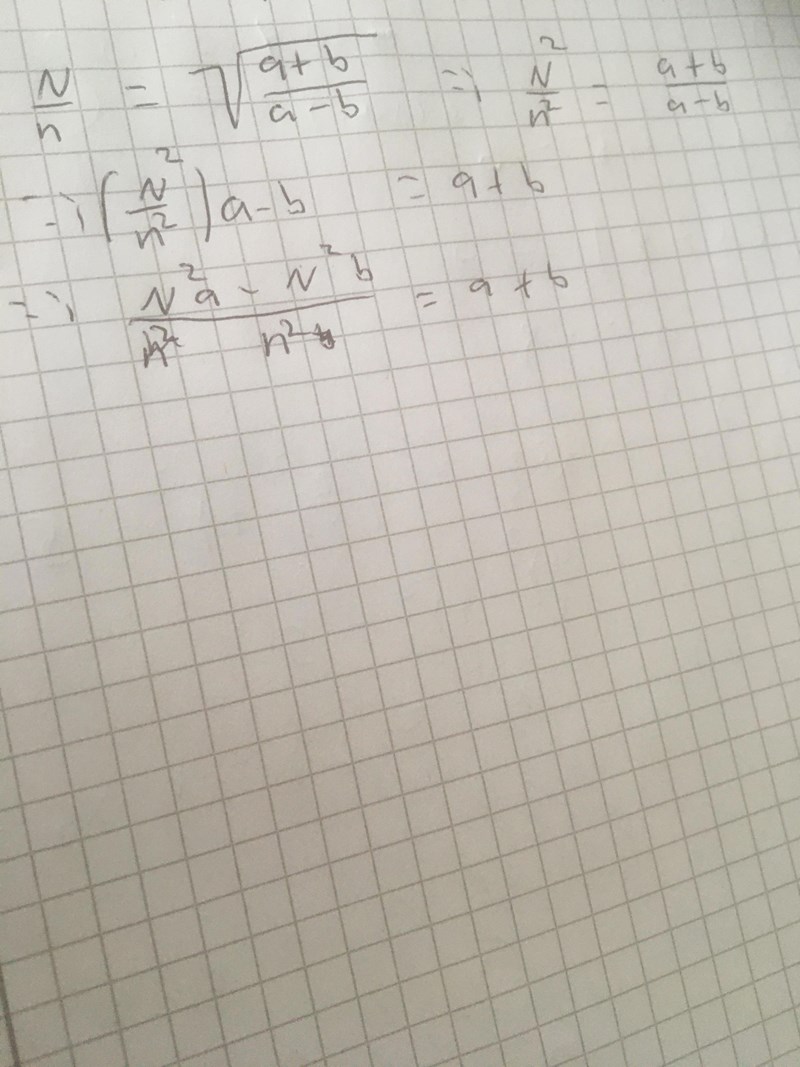 N/n = √((a+b)/(a-b)) => N²/n² = (a+b)/(a-b)
=> (N²/n²) a-b = a+b
=> (N²a - N²b)/(n² n²) = a+b